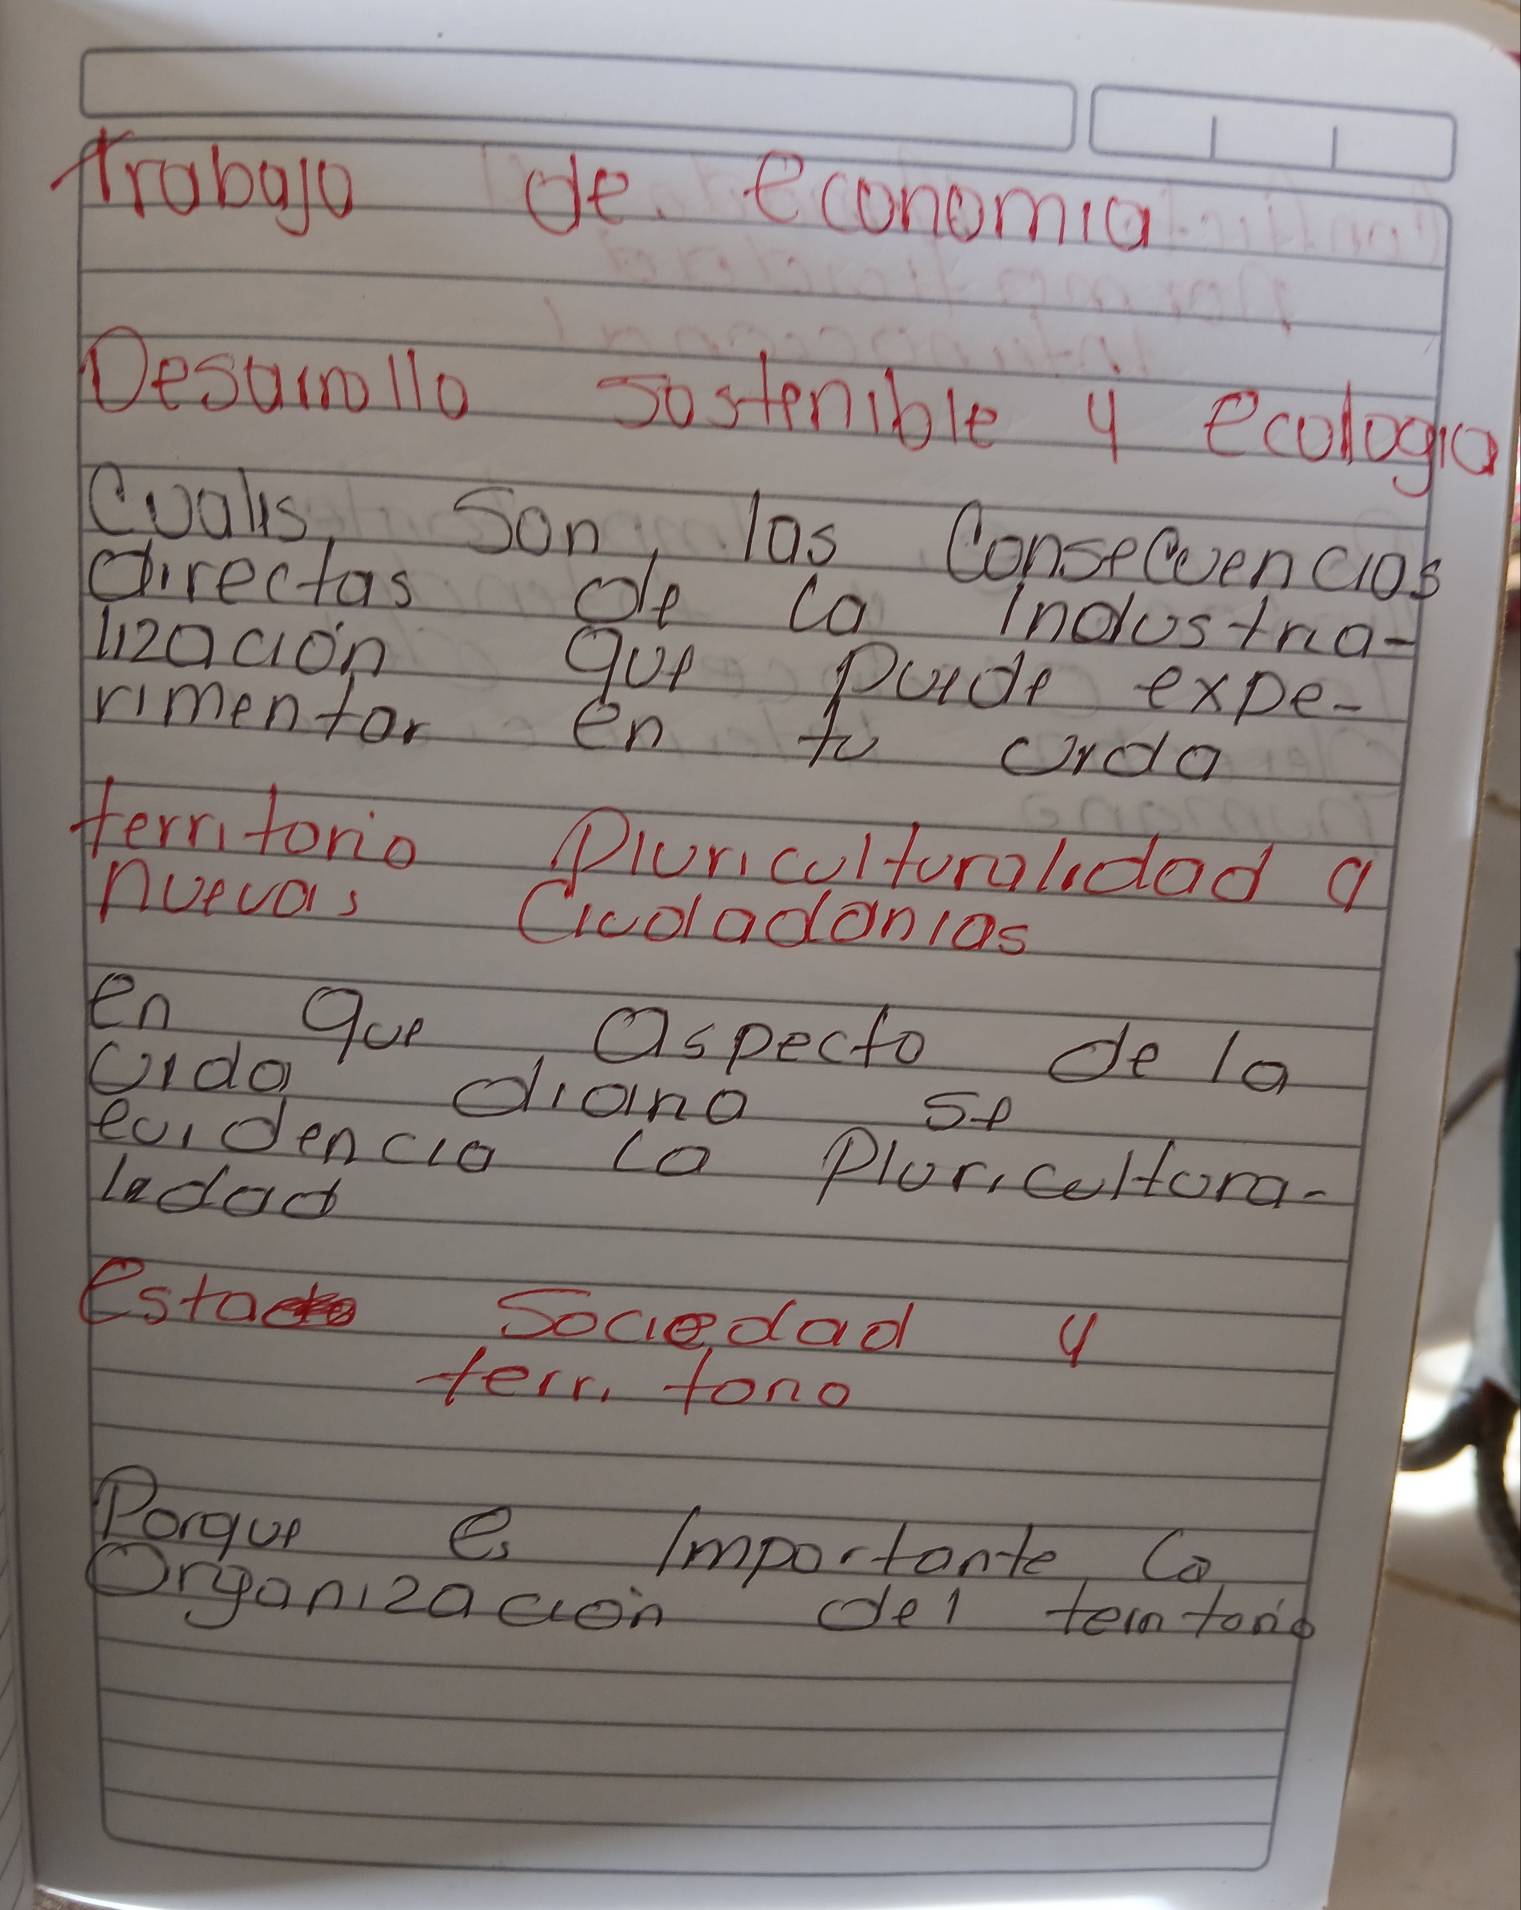 trabajo de economia
Desarrollo sostenible y ecologia
Cuales son las Consecuencias
directas de la industria-
lización que puede expe-
rimentar en tu vida
territorio Pluriculturalidad y
nuevas Ciudadanias
en que aspecto de la
vida diario se
evidencia la Pluricultura-
lidad
estado Sociedad y
territorio
Porque es importante la
Organización del territorio